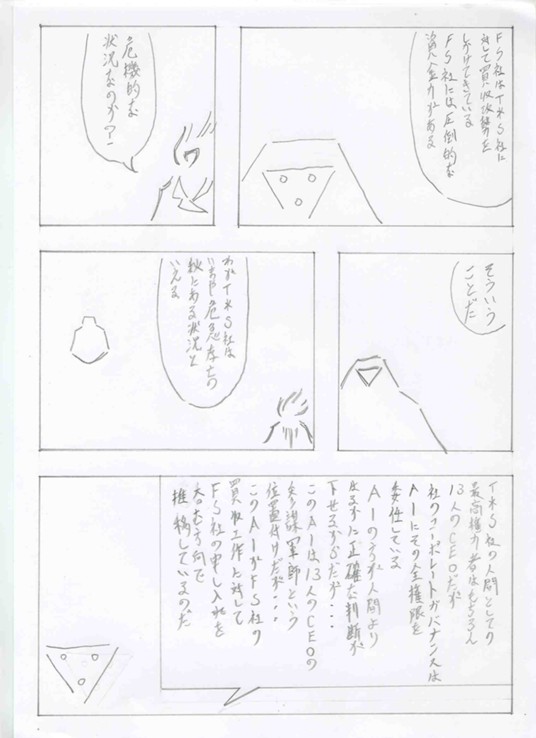 FS社はTKS社に
対して買収攻勢を
しかけてきている
FS社には圧倒的な
資金力がある
危機的な
状況なのか?
そういう
ことだ
われTKS社は
いまや危急存亡の
秋にある状況と
いえる
TKS社の人間としての
最高権力者はもちろん
13人のCEOだが
社のコーポレートガバナンスは
AIにその全権限を
委任している
AIのほうが人間より
はるかに正確な判断が
下せるからだが・・・
このAIは13人のCEOの
参謀軍師という
位置付けだが・・・
このAIがFS社の
買収工作に対して
FS社の申し入れを
呑む方向で
推稿しているのだ